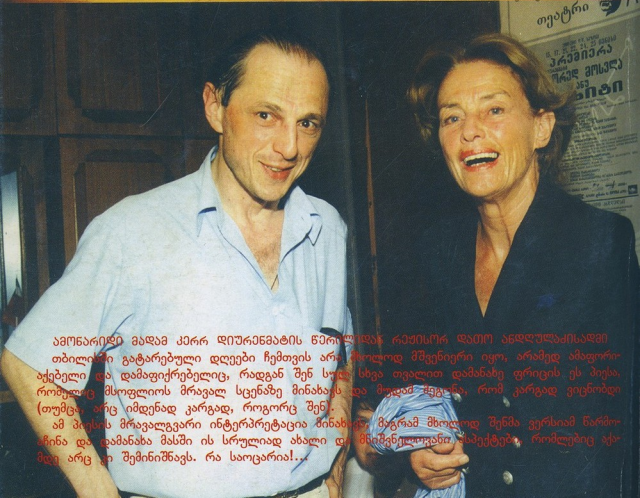 თეატრი
პრემიერა
ამონარიდი მადამ კერრ დიურენმატის წერილიდან რეჟისორ დათო ანდღულაძისადმი
თბილისში გატარებული დღეები ჩემთვის არა მხოლოდ მშვენიერი იყო, არამედ ამაფორი-
აქებელი და დამაფიქრებელიც, რადგან შენ სულ სხვა თვალით დამანახე ფრიცის ეს პიესა,
რომელიც მსოფლიოს მრავალ სცენაზე მინახავს და მუდამ მეგონა, რომ კარგად ვიცნობდი
(თუმცა, არც იმდენად კარგად, როგორც შენ).
ამ პიესის მრავალგვარი ინტერპრეტაცია მინახავს, მაგრამ მხოლოდ შენმა ვერსიამ წარმო-
აჩინა და დამანახა მასში ის სრულიად ახალი და მნიშვნელოვანი ასპექტები, რომლებიც აქა-
მდე არც კი შემინიშნავს. რა საოცარია!...